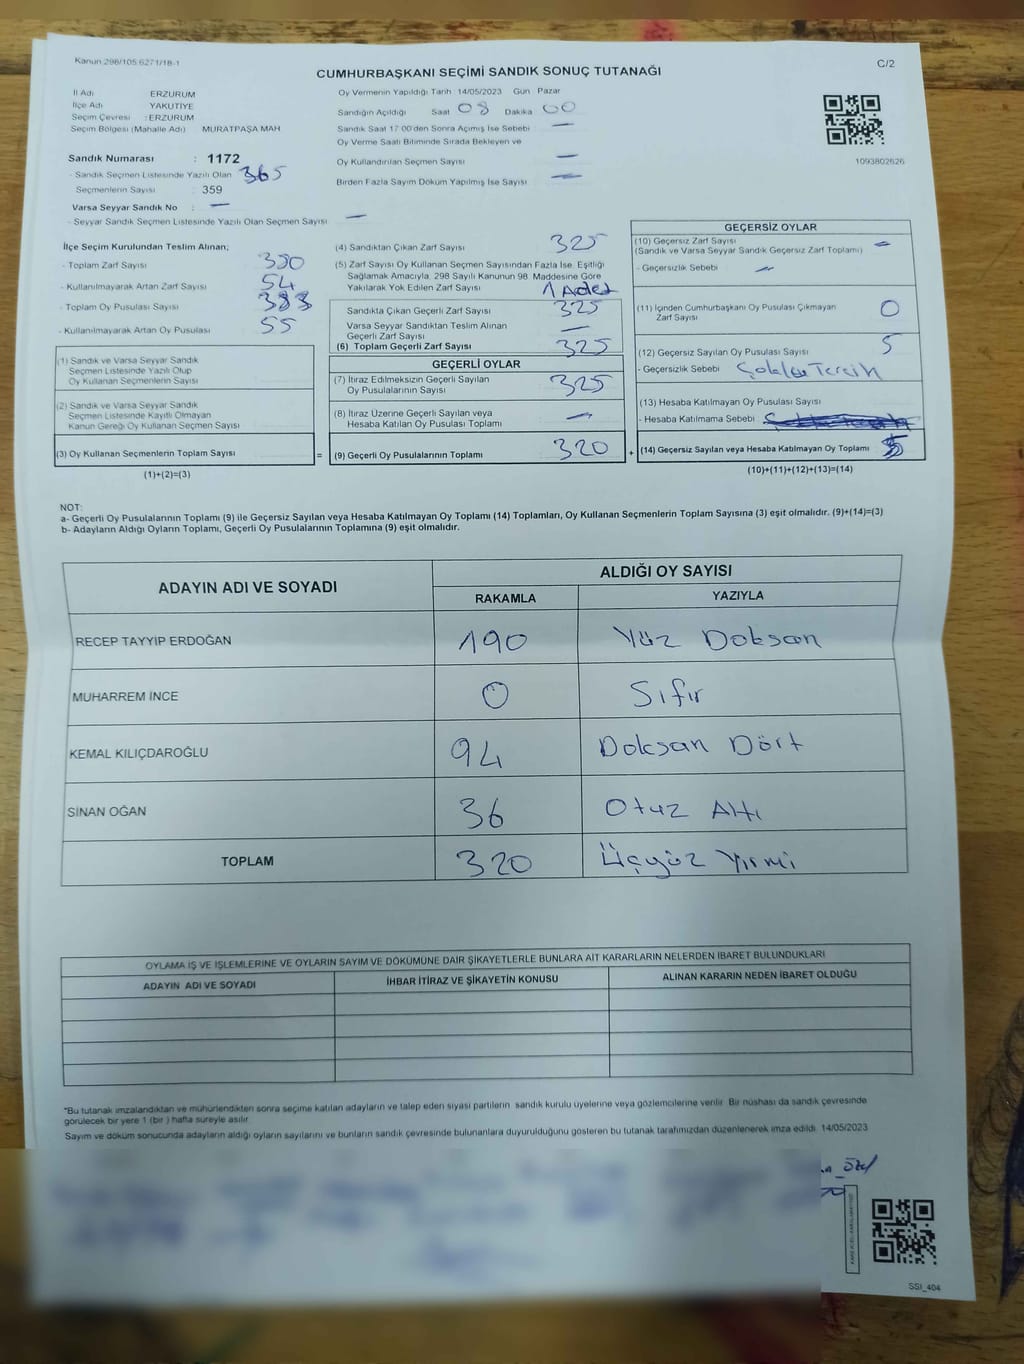 Kanun 298/105 6271/18-1
C/2
CUMHURBAŞKANI SEÇİMİ SANDIK SONUÇ TUTANAĞI
İl Adı ERZURUM
İlçe Adı YAKUTİYE
Seçim Çevresi : ERZURUM
Seçim Bölgesi (Mahalle Adı) MURATPAŞA MAH
Oy Vermenin Yapıldığı Tarih 14/05/2023 Gün Pazar
Sandığın Açıldığı Saat 08 Dakika 00
Sandık Saat 17 00'den Sonra Açımış İse Sebebi —
Oy Verme Saati Bitiminde Sırada Bekleyen ve
Oy Kullandırılan Seçmen Sayısı —
Birden Fazla Sayım Döküm Yapılmış İse Sayısı —
1093802626
Sandık Numarası : 1172
- Sandık Seçmen Listesinde Yazılı Olan 365
Seçmenlerin Sayısı 359
Varsa Seyyar Sandık No : —
- Seyyar Sandık Seçmen Listesinde Yazılı Olan Seçmen Sayısı —
İlçe Seçim Kurulundan Teslim Alınan;
- Toplam Zarf Sayısı
- Kullanılmayarak Artan Zarf Sayısı 54
- Toplam Oy Pusulası Sayısı 383
- Kullanılmayarak Artan Oy Pusulası 55
(1) Sandık ve Varsa Seyyar Sandık
Seçmen Listesinde Yazılı Olup
Oy Kullanan Seçmenlerin Sayısı
(2) Sandık ve Varsa Seyyar Sandık
Seçmen Listesinde Kayıtlı Olmayan
Kanun Gereği Oy Kullanan Seçmen Sayısı
(3) Oy Kullanan Seçmenlerin Toplam Sayısı =
(1)+(2)=(3)
(4) Sandıktan Çıkan Zarf Sayısı 325
(5) Zarf Sayısı Oy Kullanan Seçmen Sayısından Fazla İse, Eşitliği
Sağlamak Amacıyla, 298 Sayılı Kanunun 98. Maddesine Göre
Yakılarak Yok Edilen Zarf Sayısı 1 Adet
Sandıkta Çıkan Geçerli Zarf Sayısı 325
Varsa Seyyar Sandıktan Teslim Alınan
Geçerli Zarf Sayısı —
(6) Toplam Geçerli Zarf Sayısı 325
GEÇERLİ OYLAR
(7) İtiraz Edilmeksizin Geçerli Sayılan
Oy Pusulalarının Sayısı 325
(8) İtiraz Üzerine Geçerli Sayılan veya
Hesaba Katılan Oy Pusulası Toplamı —
(9) Geçerli Oy Pusulalarının Toplamı 320 +
GEÇERSİZ OYLAR
(10) Geçersiz Zarf Sayısı —
(Sandık ve Varsa Seyyar Sandık Geçersiz Zarf Toplamı)
- Geçersizlik Sebebi —
(11) İçinden Cumhurbaşkanı Oy Pusulası Çıkmayan
Zarf Sayısı 0
(12) Geçersiz Sayılan Oy Pusulası Sayısı 5
- Geçersizlik Sebebi Tercih
(13) Hesaba Katılmayan Oy Pusulası Sayısı
- Hesaba Katılmama Sebebi
(14) Geçersiz Sayılan veya Hesaba Katılmayan Oy Toplamı 5
(10)+(11)+(12)+(13)=(14)
NOT:
a- Geçerli Oy Pusulalarının Toplamı (9) ile Geçersiz Sayılan veya Hesaba Katılmayan Oy Toplamı (14) Toplamları, Oy Kullanan Seçmenlerin Toplam Sayısına (3) eşit olmalıdır. (9)+(14)=(3)
b- Adayların Aldığı Oyların Toplamı, Geçerli Oy Pusulalarının Toplamına (9) eşit olmalıdır.
ADAYIN ADI VE SOYADI
ALDIĞI OY SAYISI
RAKAMLA YAZIYLA
RECEP TAYYİP ERDOĞAN 190 Yüz Doksan
MUHARREM İNCE 0 Sıfır
KEMAL KILIÇDAROĞLU 94 Doksan Dört
SİNAN OĞAN 36 Otuz Altı
TOPLAM 320 Üçyüz Yirmi
OYLAMA İŞ VE İŞLEMLERİNE VE OYLARIN SAYIM VE DÖKÜMÜNE DAİR ŞİKAYETLERLE BUNLARA AİT KARARLARIN NELERDEN İBARET BULUNDUKLARI
ADAYIN ADI VE SOYADI İHBAR İTİRAZ VE ŞİKAYETİN KONUSU ALINAN KARARIN NEDEN İBARET OLDUĞU
*Bu tutanak imzalandıktan ve mühürlendikten sonra seçime katılan adayların ve talep eden siyasi partilerin sandık kurulu üyelerine veya gözlemcilerine verilir. Bir nüshası da sandık çevresinde
görülecek bir yere 1 (bir ) hafta süreyle asılır.
Sayım ve döküm sonucunda adayların aldığı oyların sayılarını ve bunların sandık çevresinde bulunanlara duyurulduğunu gösteren bu tutanak tarafımızdan düzenlenerek imza edildi. 14/05/2023
SSI_404